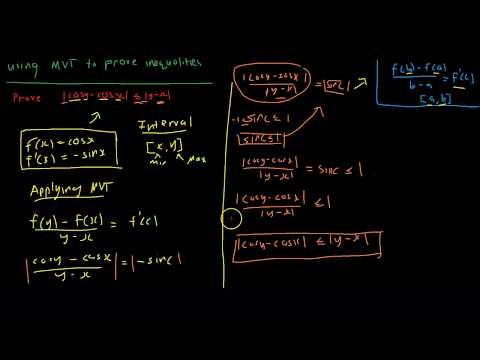 using MVT to prove inequalities
Prove |cosy-cosx| ≤ |y-x|
f(x) = cosx
f'(x) = -sinx
Interval
[x, y]
min max
Applying MVT
f(y) - f(x) / y - x = f'(c)
|cosy - cosx / y - x| = |-sinc|
|cosy - cosx| / |y-x| = |sinc|
-1 ≤ sinc ≤ 1
|sinc| ≤ 1
|cosy-cosx| / |y-x| = sinc ≤ 1
|cosy-cosx| / |y-x| ≤ 1
|cosy-cosx| ≤ |y-x|
f(b) - f(a) / b - a = f'(c)
[a, b]